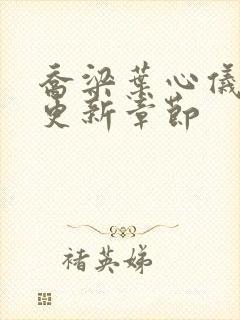 乔梁叶心仪
更新章节
褚英娣